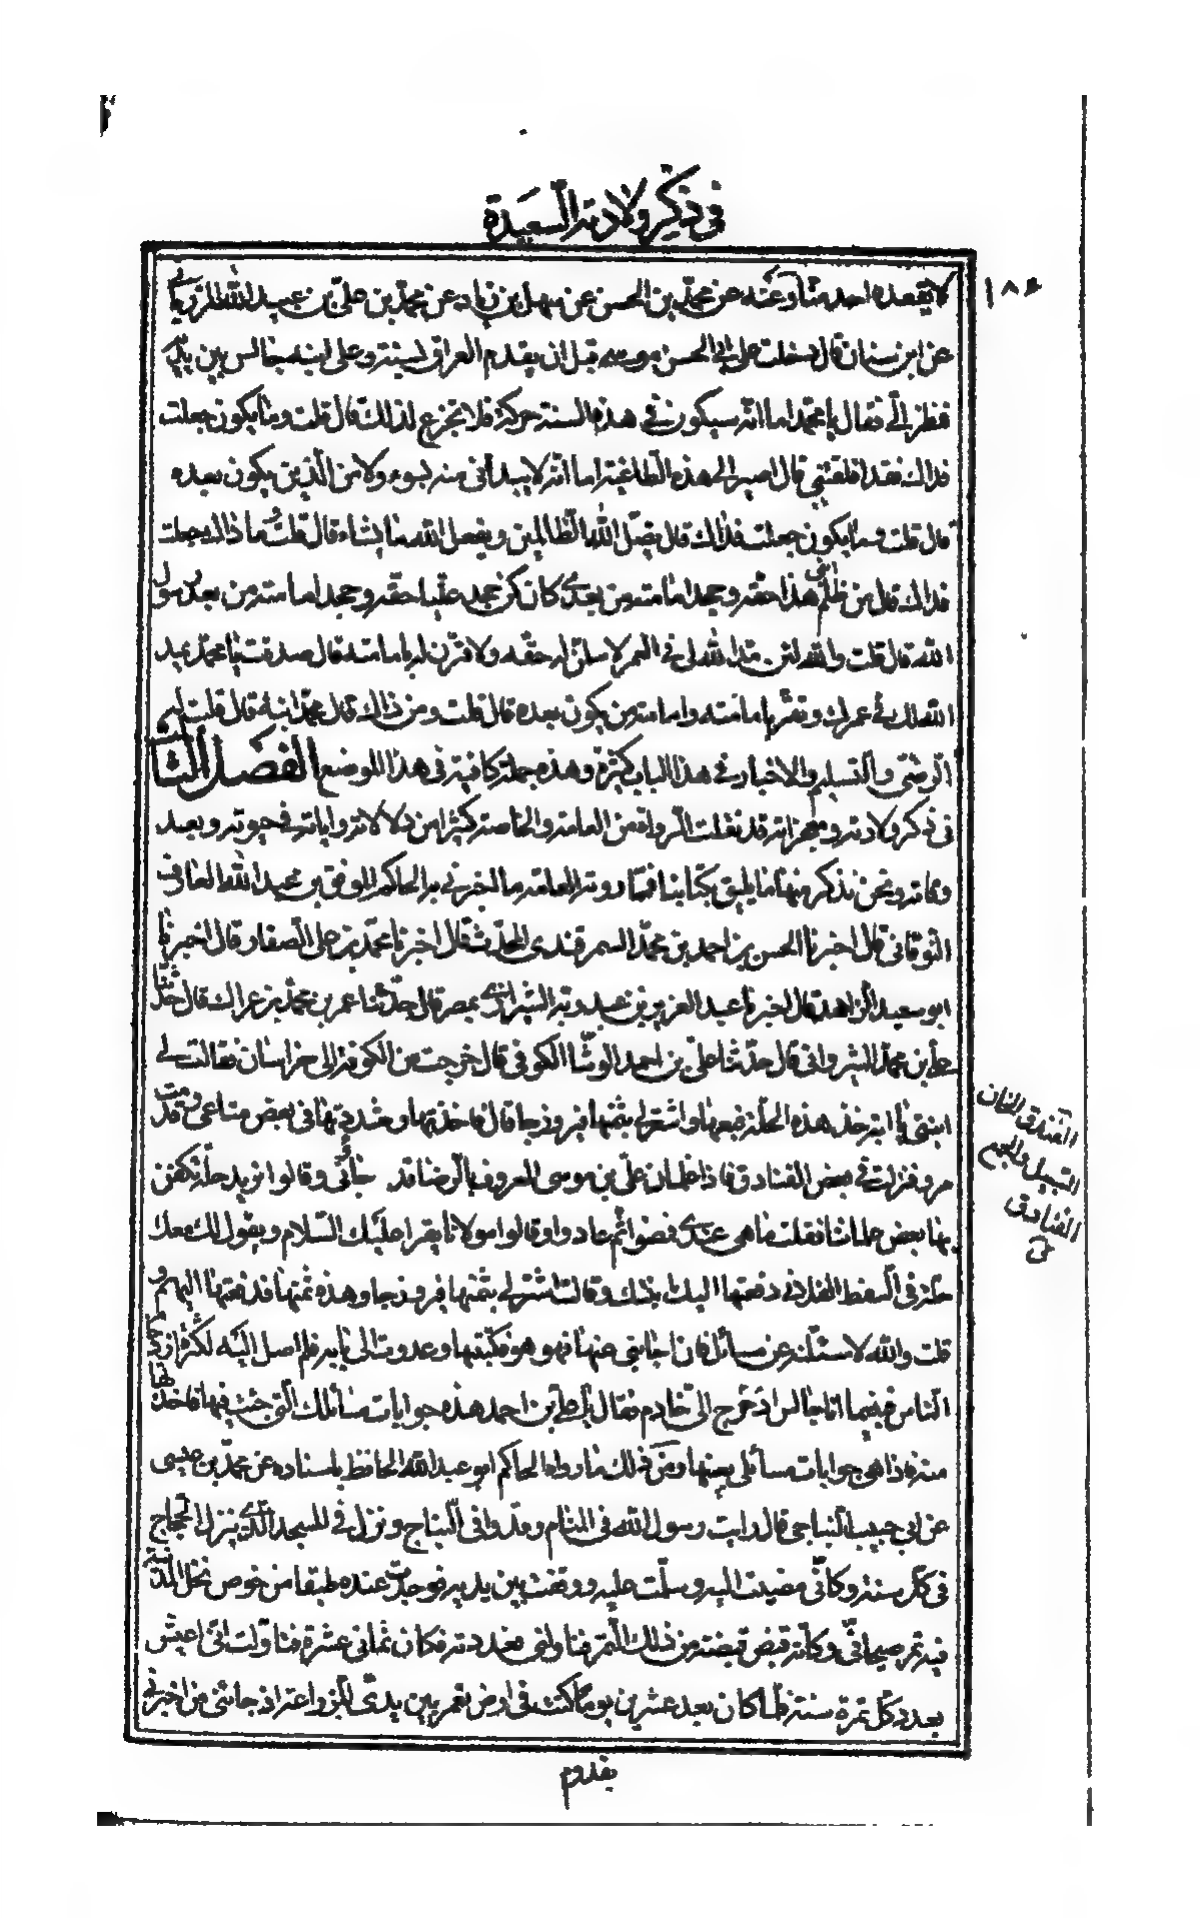 فى ذكر ولادته السعيدة
١٨٤
لا يقصده احد منا وعنه عن محمد بن الحسن عن سهل بن زياد عن محمد بن على بن عبيد الله
عن ابن سنان قال دخلت على ابى الحسن موسى قبل ان يقدم العراق بسنة وعلى ابنه جالس بين يديه
فنظر الى فقال يا محمد اما انه سيكون فى هذه السنة حركة فلا تجزع لذلك قال قلت وما يكون جعلت
فداك فقد اقلقتنى قال اصير الى هذه الطاغية اما انه لا يبدانى منه بسوء ولا من الذين يكون بعده
قال قلت وما يكون جعلت فداك قال يضل الله الظالمين ويفعل الله ما يشاء قال قلت وما ذاك جعلت
فداك قال من ظلم ابنى هذا حقه وجحد امامته من بعدى كان كمن جحد عليا حقه وجحد امامته من بعد رسول
الله قال قلت والله لئن مد الله لى فى العمر لاسلمن له حقه ولاقرن له بامامته قال صدقت يا محمد يمد
الله لك فى عمرك وتقر بامامته وامامة من يكون بعده قال قلت ومن ذاك قال محمد ابنه قال قلت له
الرضى والتسليم والاخبار فى هذا الباب كثيرة وهذه جملة كافية فى هذا الموضع الفصل الثالث
فى ذكر ولادته ومعجزاته قد نقلت الرواة من العامة والخاصة كثيرا من دلالاته واياته فى حيوته وبعد
وفاته ونحن نذكر منها ما يليق بكتابنا فمما روته العامة ما اخبرنى به الحاكم الموفق بن عبد الله العارف
النوقانى قال اخبرنا الحسن بن احمد بن محمد السمرقندى المحدث قال اخبرنا محمد بن على الصفار قال اخبرنا
ابو سعيد الزاهد قال اخبرنا عبد العزيز بن عبد ربه الشيرازى بمصر قال حدثنا عمر بن محمد بن عراك قال حدثنا
على بن محمد الشيروانى قال حدثنا على بن احمد الوشا الكوفى قال خرجت من الكوفة الى خراسان فقالت لى
ابنتى يا ابه خذ هذه الحلة فبعها واشتر لى بثمنها فيروزجا قال فاخذتها وشددتها فى بعض متاعى وقدمت
مرو فنزلت فى بعض الفنادق فاذا غلمان على بن موسى المعروف بالرضا قد جاؤنى وقالوا نريد حلة نكفن
بها بعض غلماننا فقلت ما هى عندى فمضوا ثم عادوا وقالوا مولانا يقرا عليك السلام ويقول لك معك
حلة فى السفط الفلانى دفعتها اليك ابنتك وقالت اشتر لى بثمنها فيروزجا وهذه ثمنها فدفعتها اليهم و
قلت والله لاسئلنه عن مسائل فان اجابنى عنها فهو هو فكتبتها وغدوت الى بابه فلم اصل اليه لكثرة ازدحام
الناس فبينما انا جالس اذ خرج الى خادم فقال يا على بن احمد هذه جوابات مسائلك التى جئت فيها فاخذتها
منه فاذا هى جوابات مسائلى بعينها ومن ذلك ما رواه الحاكم ابو عبد الله الحافظ باسناده عن محمد بن عيسى
عن ابى حبيب النباجى قال رايت رسول الله فى المنام وقد وافى النباج ونزل فى المسجد الذى ينزله الحجاج
فى كل سنة وكانى مضيت اليه وسلمت عليه ووقفت بين يديه فوجدت عنده طبقا من خوص نخل المدينة
فيه تمر صيحانى وكانه قبض قبضة من ذلك التمر فناولنى فعددته فكان ثمانى عشرة فتاولت انى اعيش
بعدد كل تمرة سنة فلما كان بعد عشرين يوما كنت فى ارض تعمر بين يدى للزراعة اذ جائنى من اخبرنى
بقدوم
الفندق الخان
السبيل والجمع
الفنادق
ق